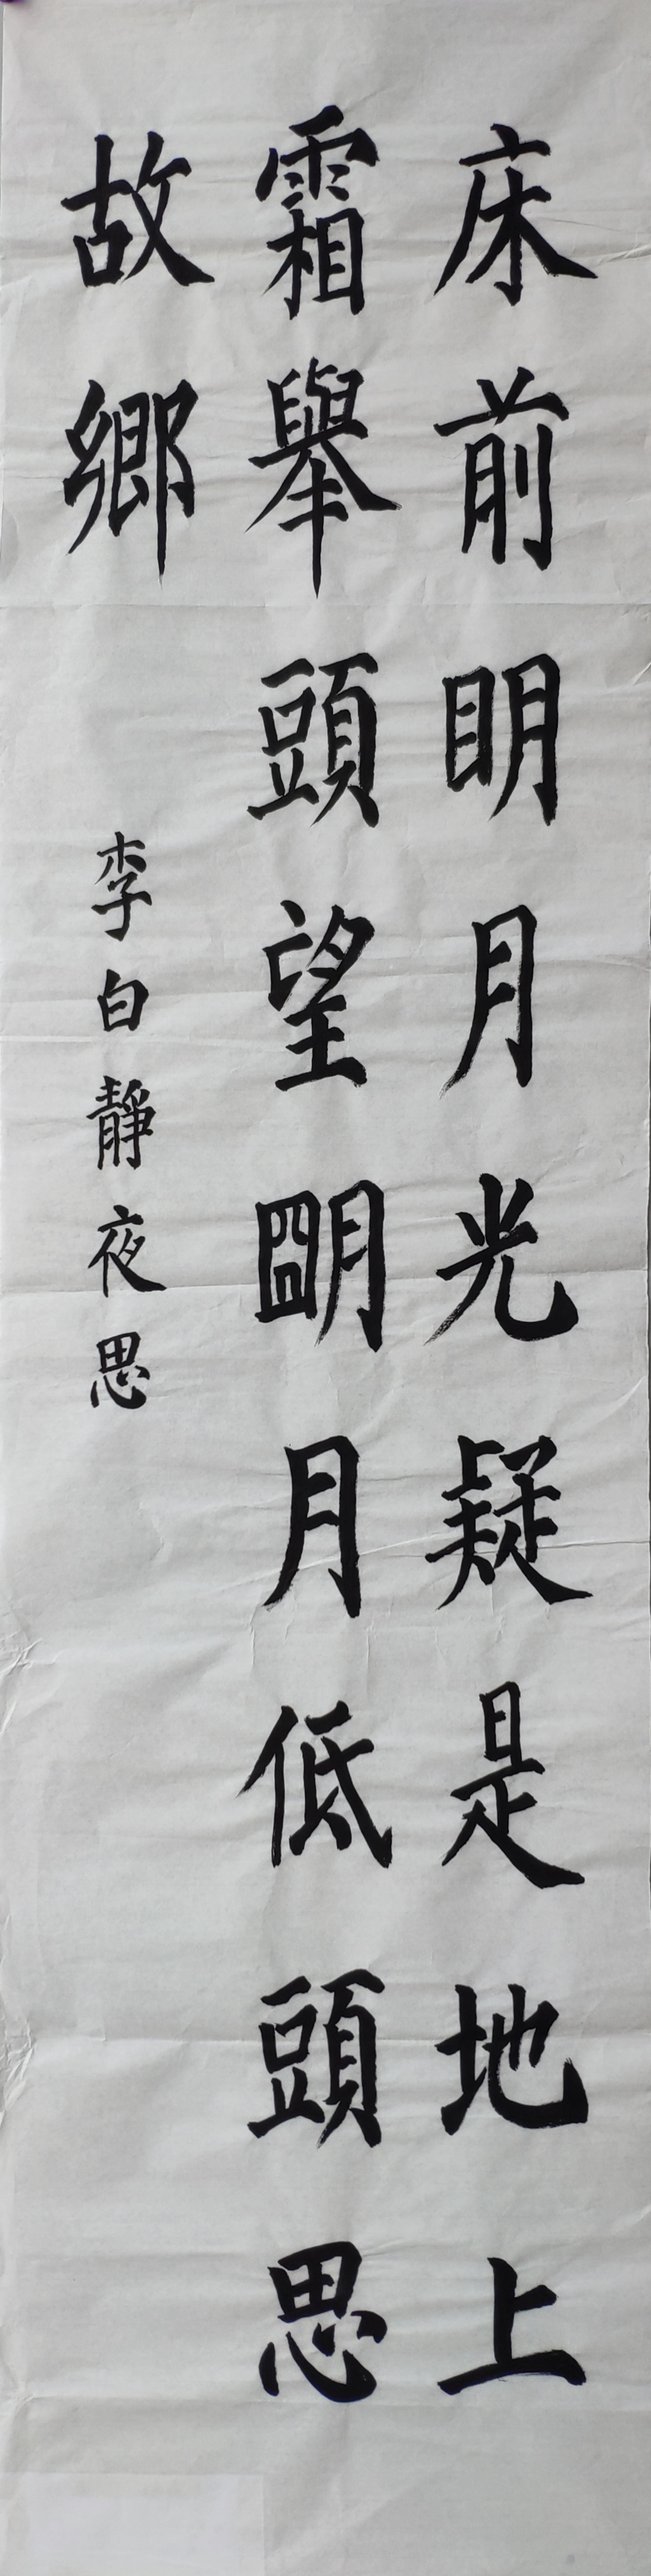 床前眀月光疑是地上
霜舉頭望朙月低頭思
故鄉
李白靜夜思